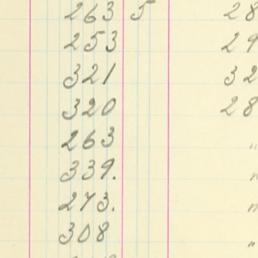 263 5 28
253 29
321 32
320 28
263 "
339. "
273. "
308 "